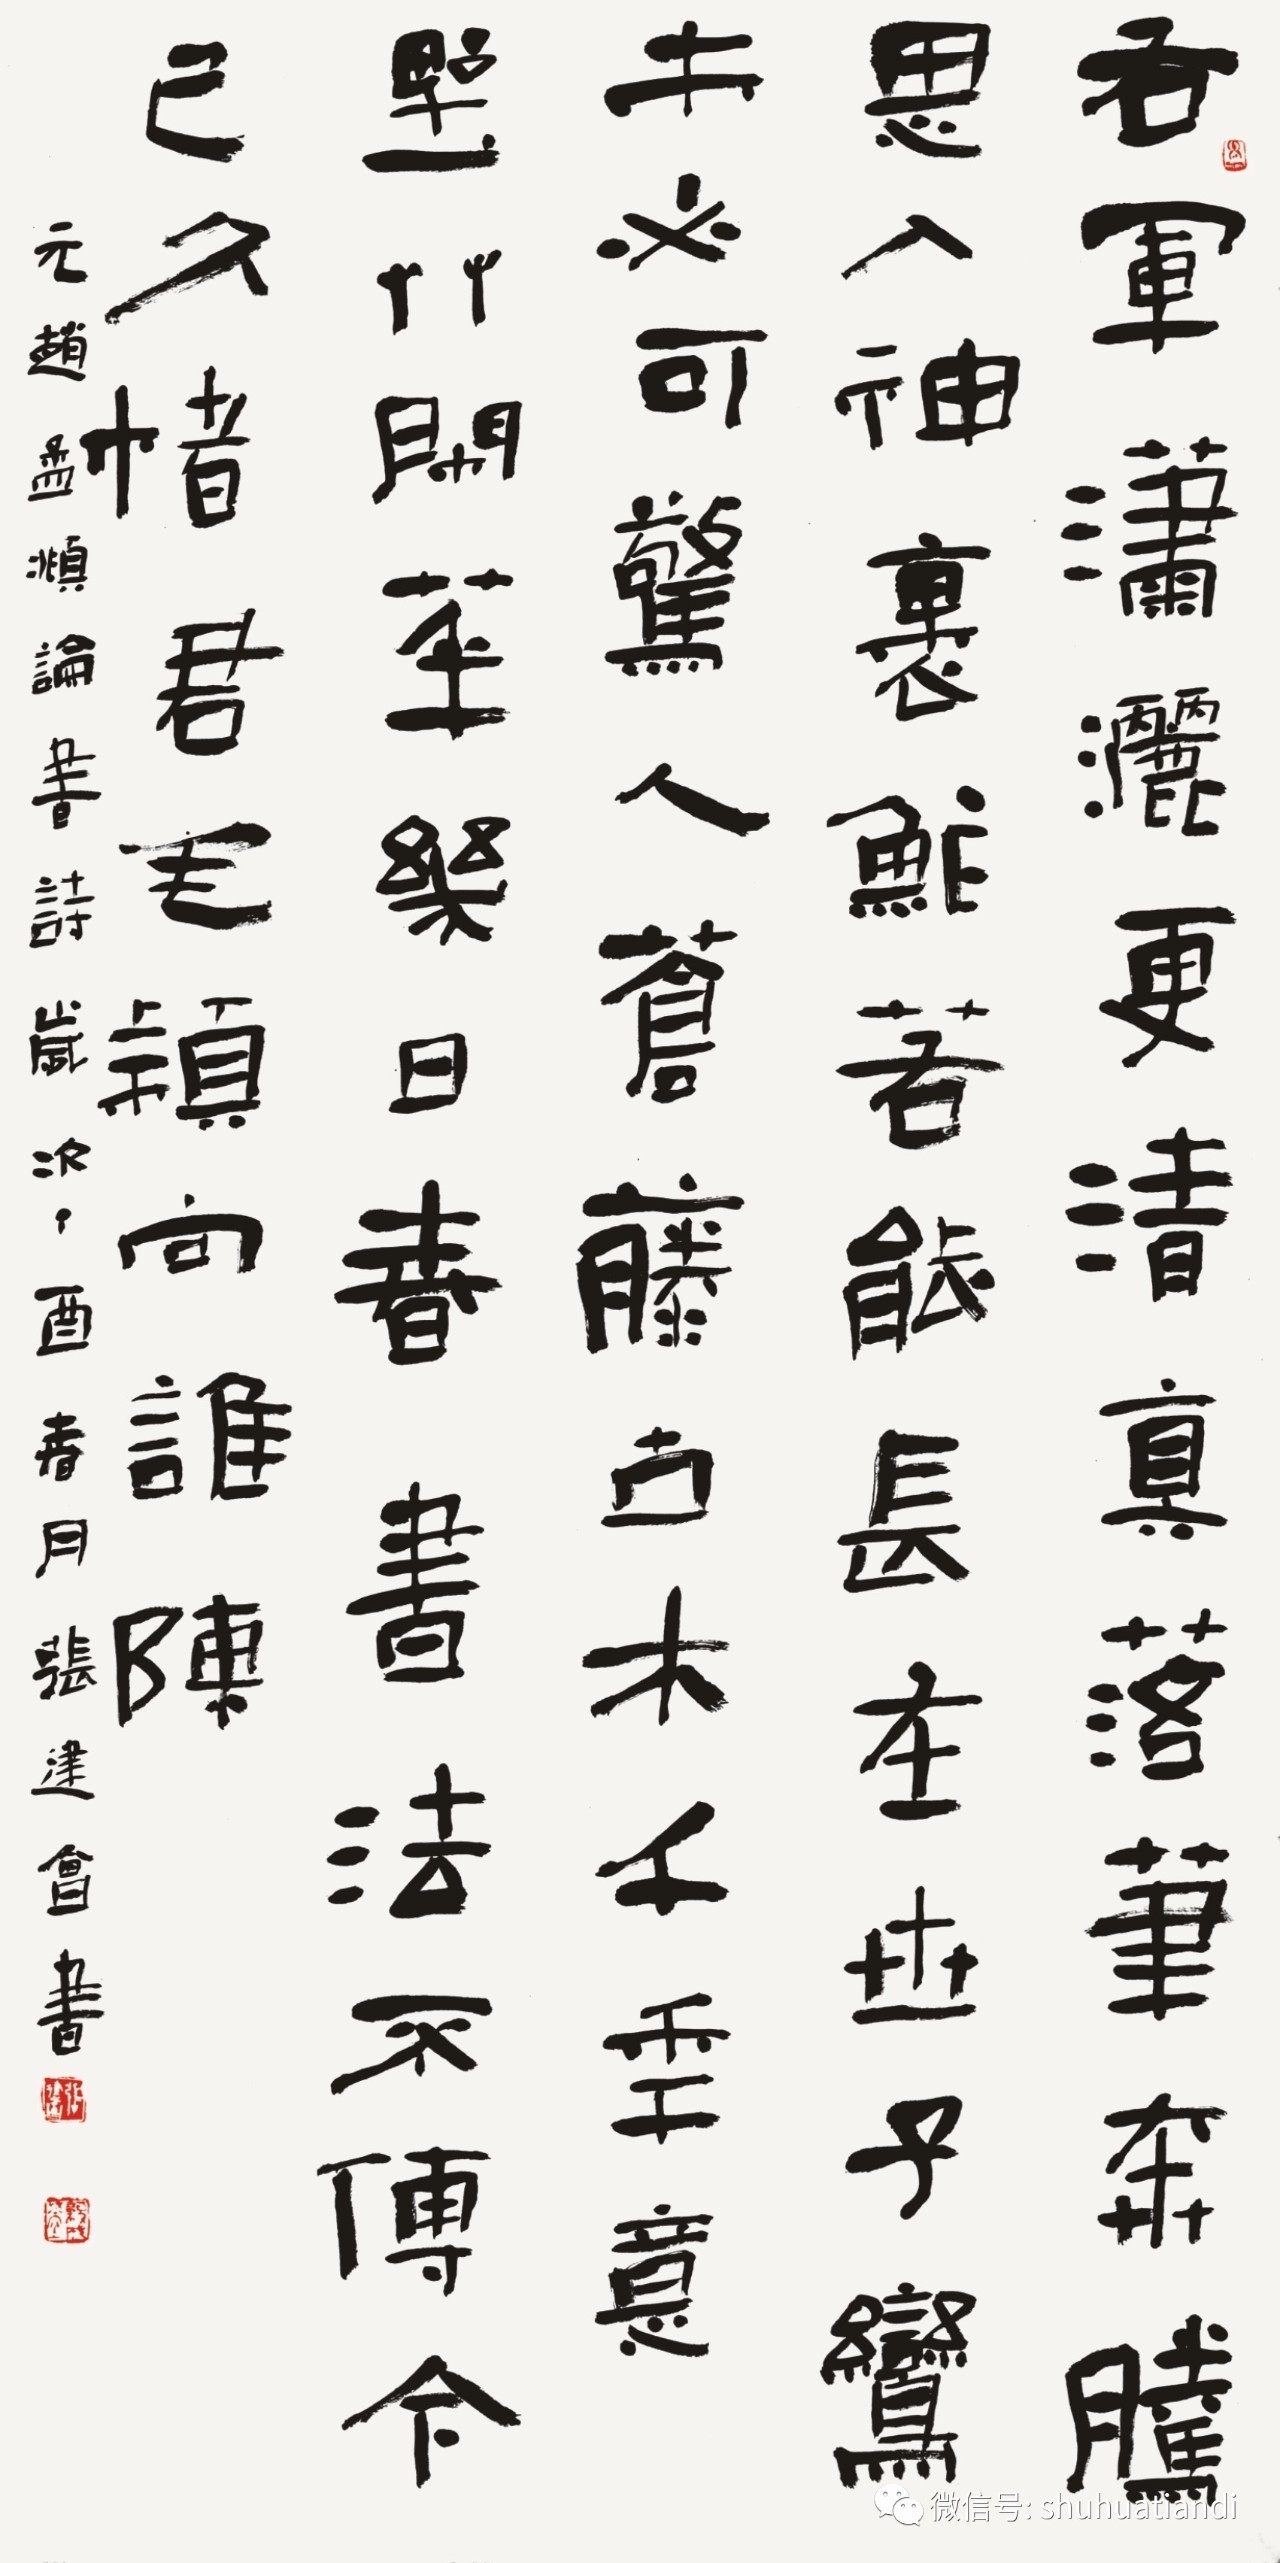 右軍瀟灑更清真落筆奔騰
思入神裹鮓若能長在世子鸞
未必可驚人蒼藤古木千年意
野艸閑華幾日春書法不傳今
已久楮君毛穎向誰陳
元趙孟頫論書詩歲次丁酉春月張建會書
微信号: shuhuatiandi